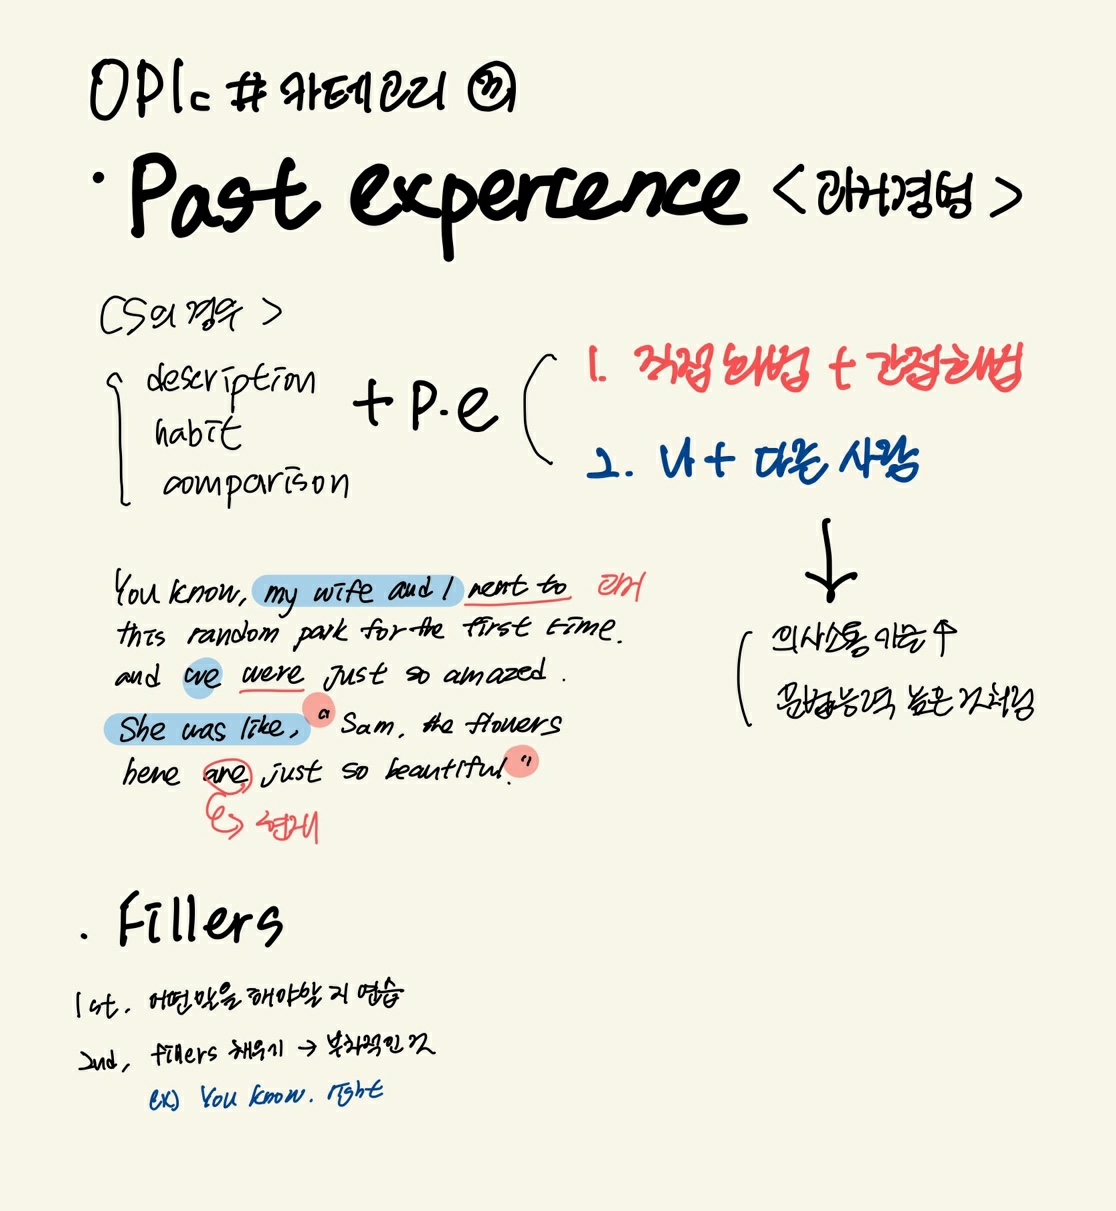 OPIc # 카테고리 ③
· Past experience <과거경험>
CS의 경우 >
description
habit
comparison
+ P.e
1. 직접화법 + 간접화법
2. 나 + 다른 사람
↓
의사소통 기능 ↑
문법능력 높은 것처럼
You know, my wife and I went to 과거
this random park for the first time.
and we were just so amazed.
She was like, " Sam, the flowers
here are just so beautiful."
↳ 현재
· Fillers
1st. 어떤말을 해야할지 연습
2nd, fillers 채우기 → 부차적인 것
ex) You know. right